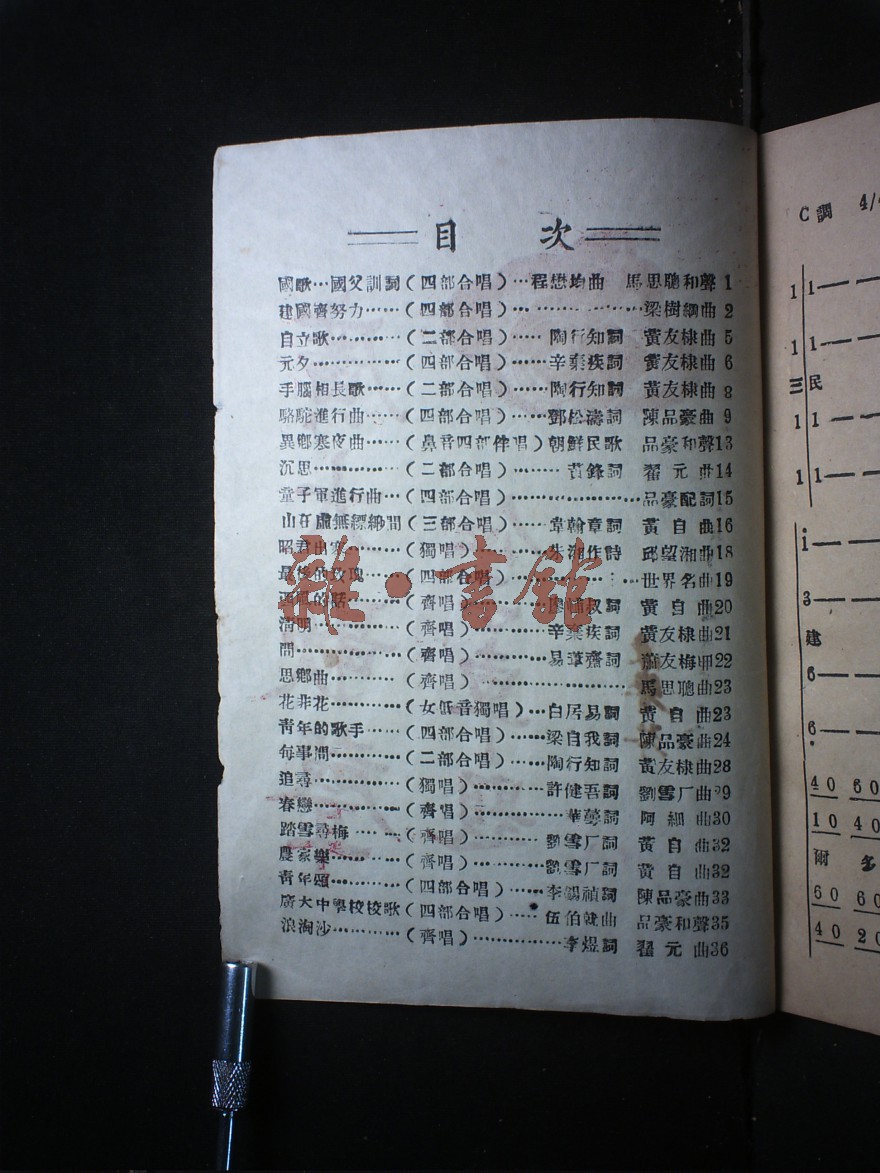 目 次
國歌…國父訓詞(四部合唱)…程懋均曲 馬思聰和聲 1
建國齊努力……(四部合唱)……………梁樹綱曲 2
自立歌…………(二部合唱)……陶行知詞 黃友棣曲 5
元夕……………(四部合唱)……辛棄疾詞 黃友棣曲 6
手腦相長歌……(二部合唱)……陶行知詞 黃友棣曲 8
駱駝進行曲……(四部合唱)……鄧松濤詞 陳品豪曲 9
異鄉寒夜曲……(鼻音四部伴唱)朝鮮民歌 品豪和聲13
沉思……………(二部合唱)………黃鋒詞 翟元曲14
童子軍進行曲…(四部合唱)………………品豪配詞15
山在虛無縹緲間(三部合唱)……韋翰章詞 黃自曲16
昭君出塞………(獨唱)…………朱湘作詩 邱望湘曲18
最後的玫瑰……(四部合唱)……………世界名曲19
西風的話………(齊唱)…………廖輔叔詞 黃自曲20
清明……………(齊唱)…………辛棄疾詞 黃友棣曲21
問………………(齊唱)…………易韋齋詞 蕭友梅曲22
思鄉曲…………(齊唱)……………………馬思聰曲23
花非花…………(女低音獨唱)…白居易詞 黃自曲23
青年的歌手……(四部合唱)……梁自我詞 陳品豪曲24
每事問…………(二部合唱)……陶行知詞 黃友棣曲28
追尋……………(獨唱)…………許健吾詞 劉雪厂曲 9
春戀……………(齊唱)……………華詞 阿曲30
踏雪尋梅………(齊唱)…………劉雪厂詞 黃自曲32
農家樂…………(齊唱)…………劉雪厂詞 黃自曲32
青年頌…………(四部合唱)……李錫禎詞 陳品豪曲33
廣大中學校校歌(四部合唱)……伍伯就曲 品豪和聲35
浪淘沙…………(齊唱)……………李煜詞 翟元曲36
雜·書館
C調 4/4
1 1——
1 1——
三 民
1 1——
1 1——
i——
3——
建
6——
6——
4 0 6 0
1 0 4 0
爾 多
6 0 6 0
4 0 2 0